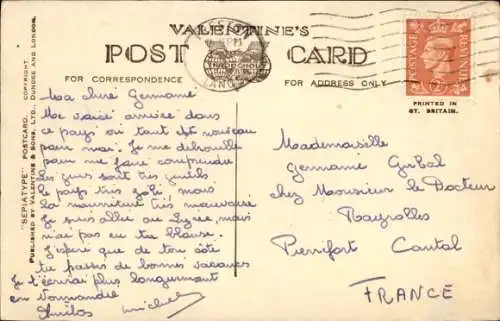 VALENTINE'S
POST CARD
FOR CORRESPONDENCE
FOR ADDRESS ONLY
POSTAGE REVENUE
PRINTED IN
GT. BRITAIN.
"SEPIATYPE" POSTCARD. COPYRIGHT.
PUBLISHED BY VALENTINE & SONS, LTD., DUNDEE AND LONDON.
Ma chère Germaine
Me voici arrivée dans
ce pays où tout est nouveau
pour moi. Je me débrouille
pour me faire comprendre
les gens sont très gentils
le pays très joli mais
la nourriture très mauvaise
Je suis allée au Lycée, mais
n'ai pas eu ta blouse.
J'espère que de ton côté
tu passes de bonnes vacances
Je t'écrirai plus longuement
en Normandie
Amitiés
Michel
Mademoiselle
Germaine
chez Monsieur le Docteur
Rayrolles
Pierrefort Cantal
FRANCE